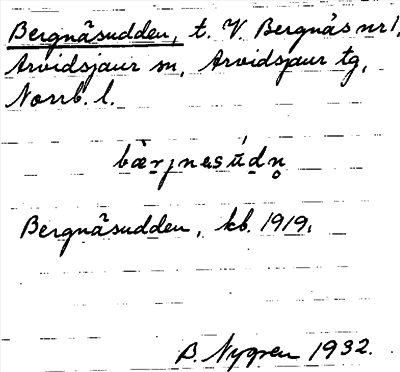 Bergnäsudden, t. V. Bergnäs nr 1,
Arvidsjaur sn, Arvidsjaur tg,
Norrb. l.
bæ̀rjnesúdn̥
Bergnäsudden, kb. 1919.
B. Nygren 1932.